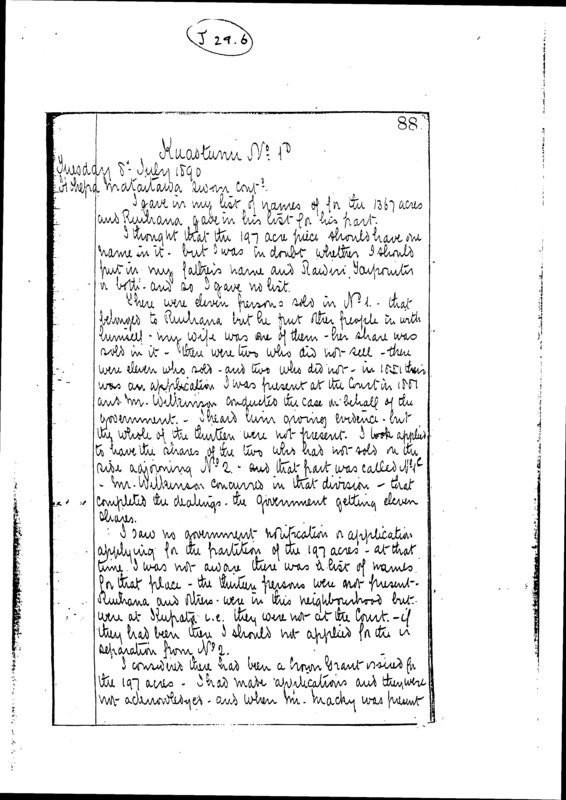 J 29.6
88
Kuaotunu No 1D
Tuesday 8th July 1890
Hohepa Mataitawa sworn contd.
I gave in my list of names of for the 1367 acres
and Ruihana gave in his list for his part.
I thought that the 197 acre piece should have one
name in it - but I was in doubt whether I should
put in my father's name and Rawiri
or both - and so I gave no list.
There were eleven persons sold in No 1. - that
belonged to Ruihana but he put other people in with
himself - my wife was one of them - her share was
sold in it - there were two who did not sell - there
were eleven who sold - and two who did not - in 1881 there
was an application I was present at the Court in 1881
and Mr. Wilkinson conducted the case on behalf of the
government. - I heard him giving evidence - but
the whole of the thirteen were not present. I took applied
to have the shares of the two who had not sold on the
side adjoining No 2. - and that part was called No 1C
- Mr. Wilkinson concurred in that division - that
completed the dealings - the government getting eleven
shares.
I saw no government notification or application
applying for the partition of the 197 acres - at that
time I was not aware there was a list of names
for that place - the thirteen persons were not present -
Ruihana and others were in this neighbourhood but
were at i.e. they were not at the Court. - if
they had been there I should not applied for the
separation from No 2.
I considered there had been a Crown Grant issued for
the 197 acres - I had made applications and they were
not acknowledged - and when Mr. Macky was present